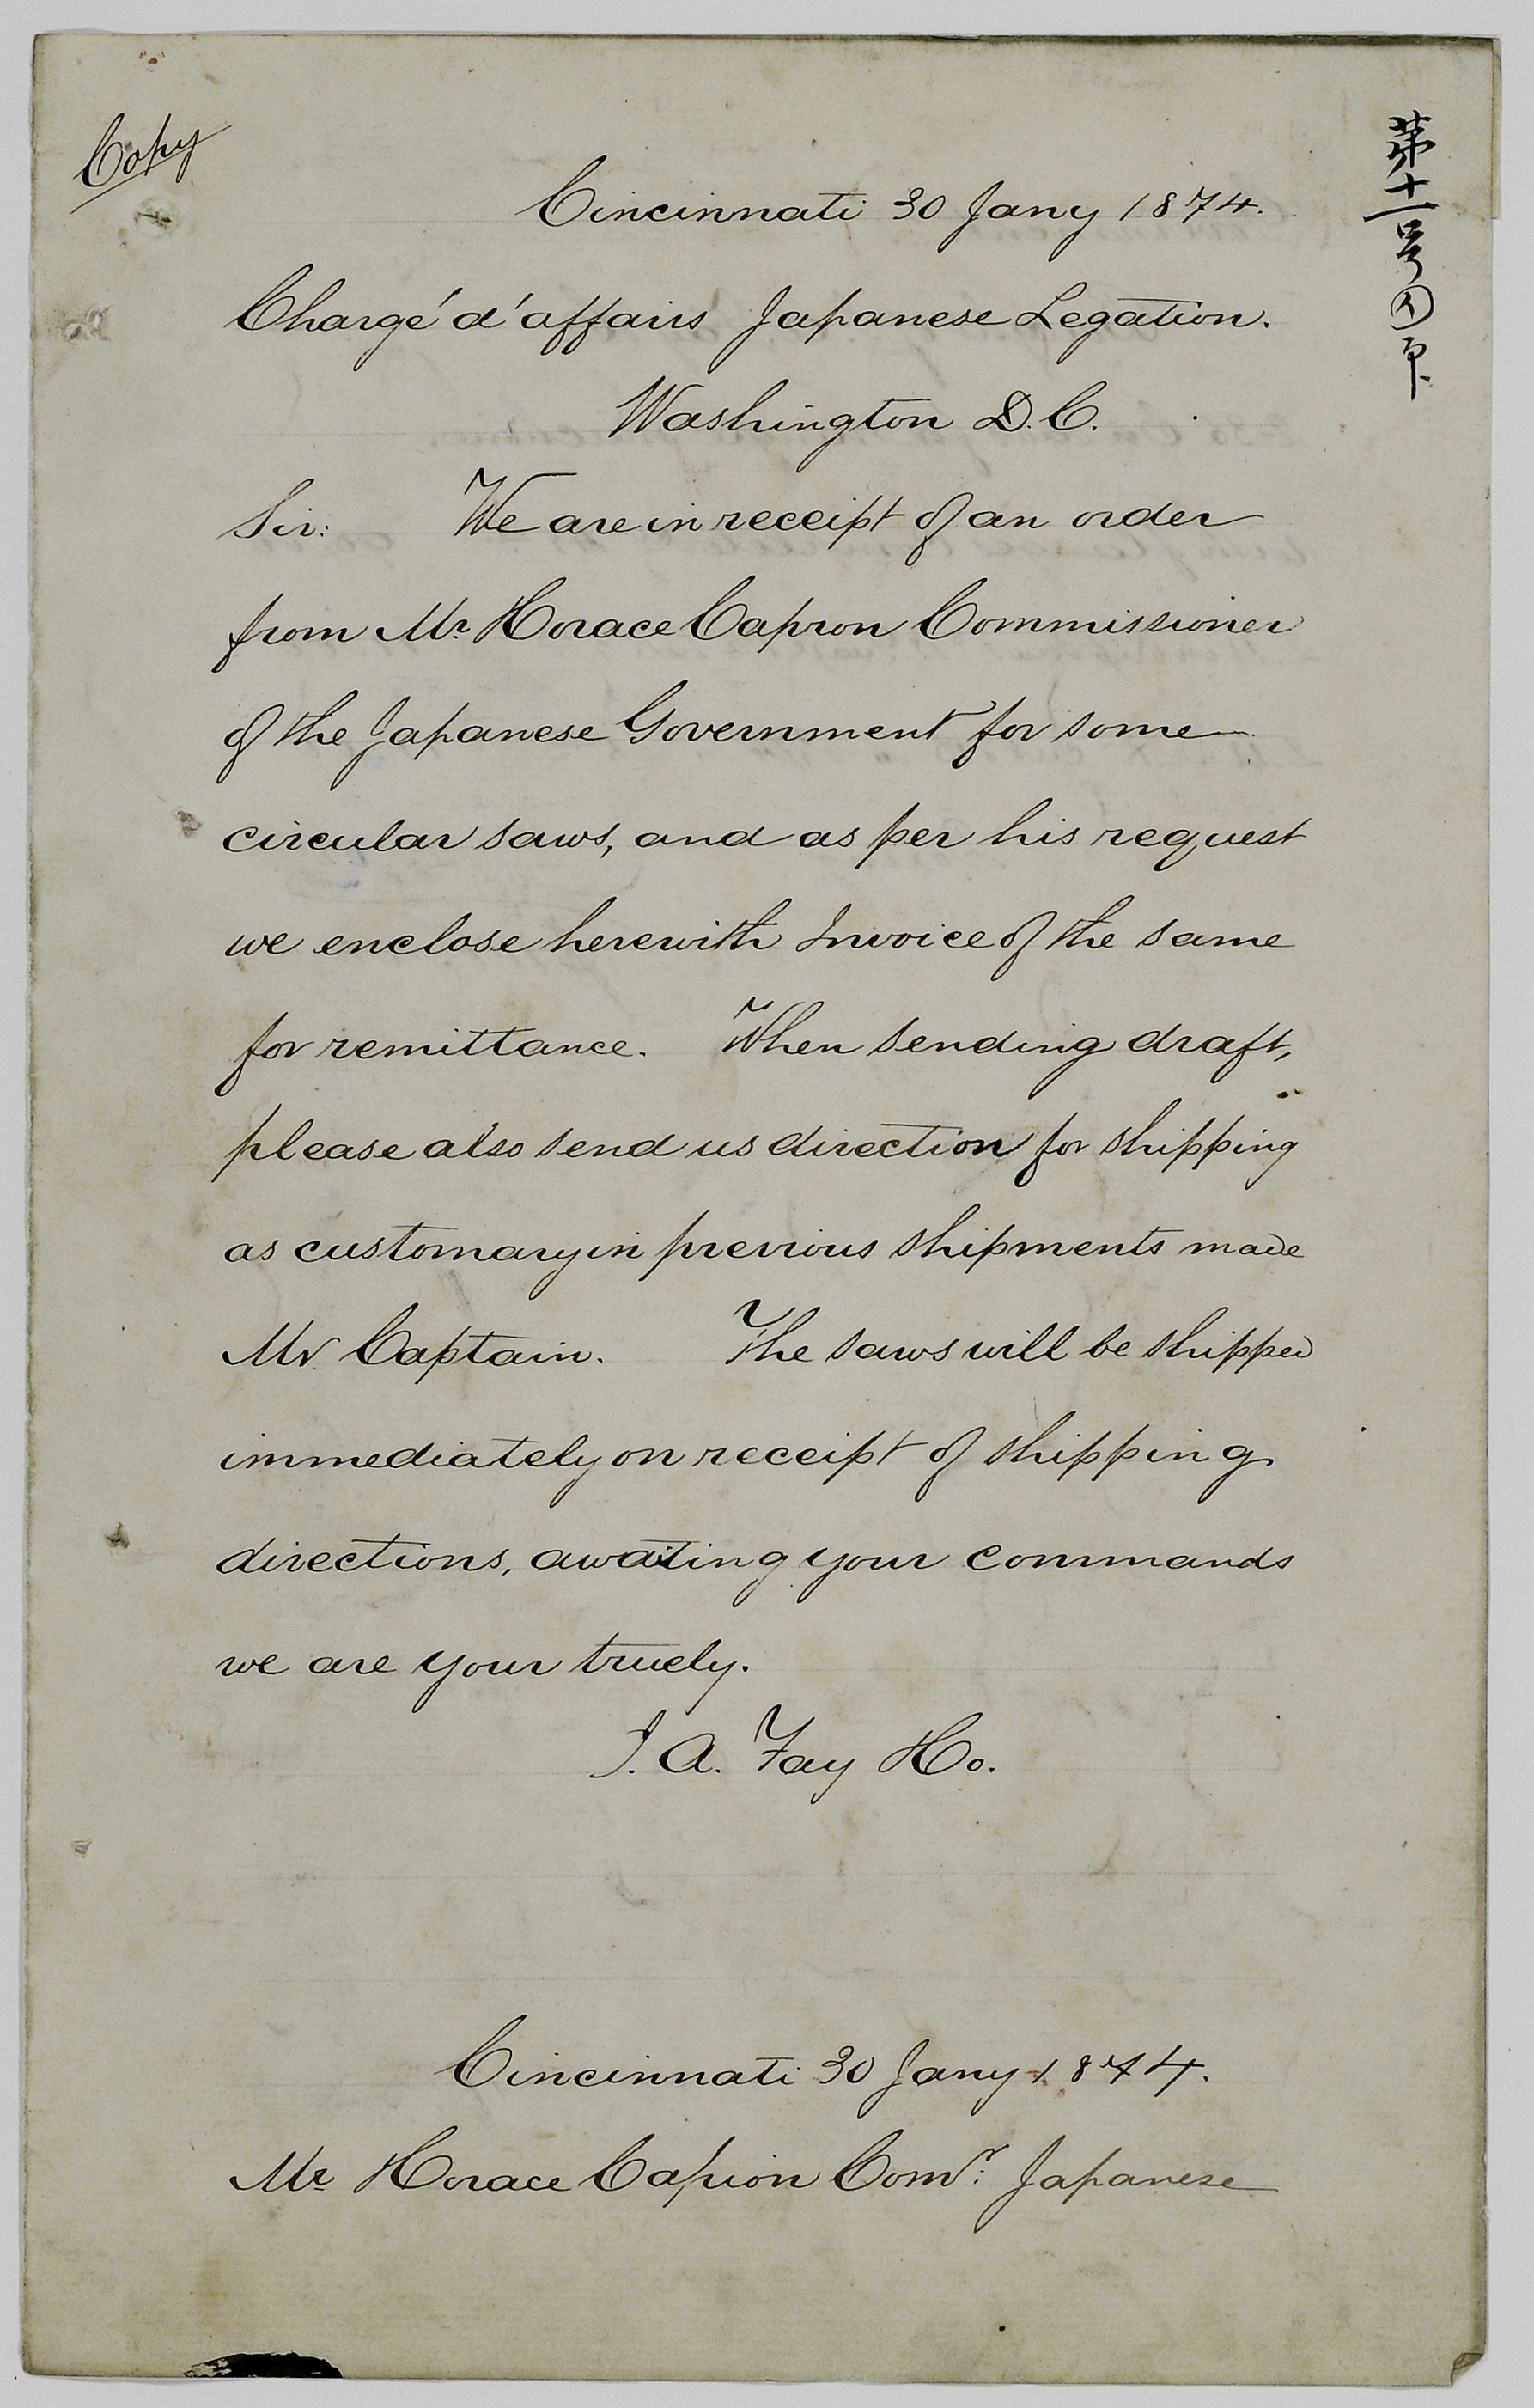 Copy
第十一号
Cincinnati 30 Jany 1874.
Chargé d'affairs Japanese Legation.
Washington D.C.
Sir: We are in receipt of an order
from Mr Horace Capron Commissioner
of the Japanese Government for some
circular saws, and as per his request
we enclose herewith Invoice of the same
for remittance. When sending draft,
please also send us direction for shipping
as customary in previous shipments made
Mr Captain. The saws will be shipped
immediately on receipt of shipping
directions, awaiting your commands
we are your truely.
J. A. Fay
Cincinnati 30 Jany 1874.
Mr Horace Capron Comr: Japanese